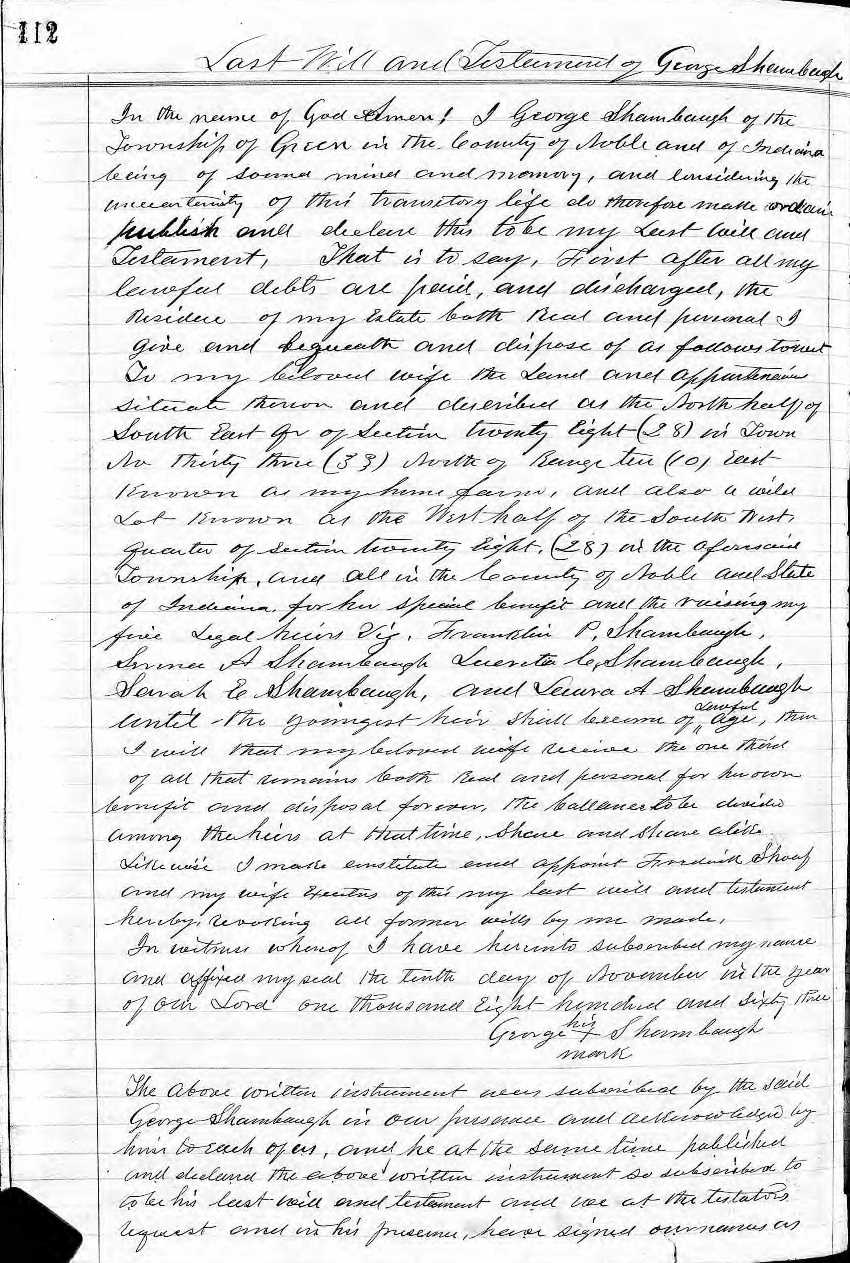 112
Last Will and Testament of George Shambaugh
In the name of God Amen! I George Shambaugh of the
Township of Green in the County of Noble and of Indiana
being of sound mind and memory, and considering the
uncertainity of this transitory life do therefore make ordain
publish and declare this to be my Last Will and
Testament, That is to say, First after all my
lawful debts are paid, and discharged, the
Residue of my Estate both Real and personal I
give and bequeath and dispose of as follows towit
To my beloved wife the Land and
situate thereon and described as the North half of
South East Qr of Section twenty Eight (28) in Town
No thirty three (33) North of Range ten (10) East
Known as my home farm, and also a wild
Lot Known as the West half of the South West,
quarter of section twenty Eight, (28) in the aforesaid
Township, and all in the County of Noble and State
of Indiana, for her special benefit and the raising my
five Legal heirs Viz, Franklin P, Shambaugh,
A Shambaugh C, Shambaugh,
Sarah E Shambaugh, and Laura A Shambaugh
until the youngest heir shall become of Lawful age, then
I will that my beloved wife receive the one third
of all that remains both Real and personal for her own
benefit and disposal forever, the ballance to be divided
among the heirs at that time, Share and share alike
Likewise I make constitute and appoint Fredrick Shoaf
and my wife of this my last will and testament
hereby, revoking all former wills by me made,
In witness whereof I have hereunto subscribed my name
and affixed my seal the tenth day of November in the year
of our Lord one thousand Eight hundred and sixty three
George his X Shambaugh
mark
The above written instrument was subscribed by the said
George Shambaugh in our presence and acknowledged by
him to each of us, and he at the same time published
and declared the above written instrument so subscribed to
to be his last will and testament and we at the testators
request and in his presence, have signed our names as